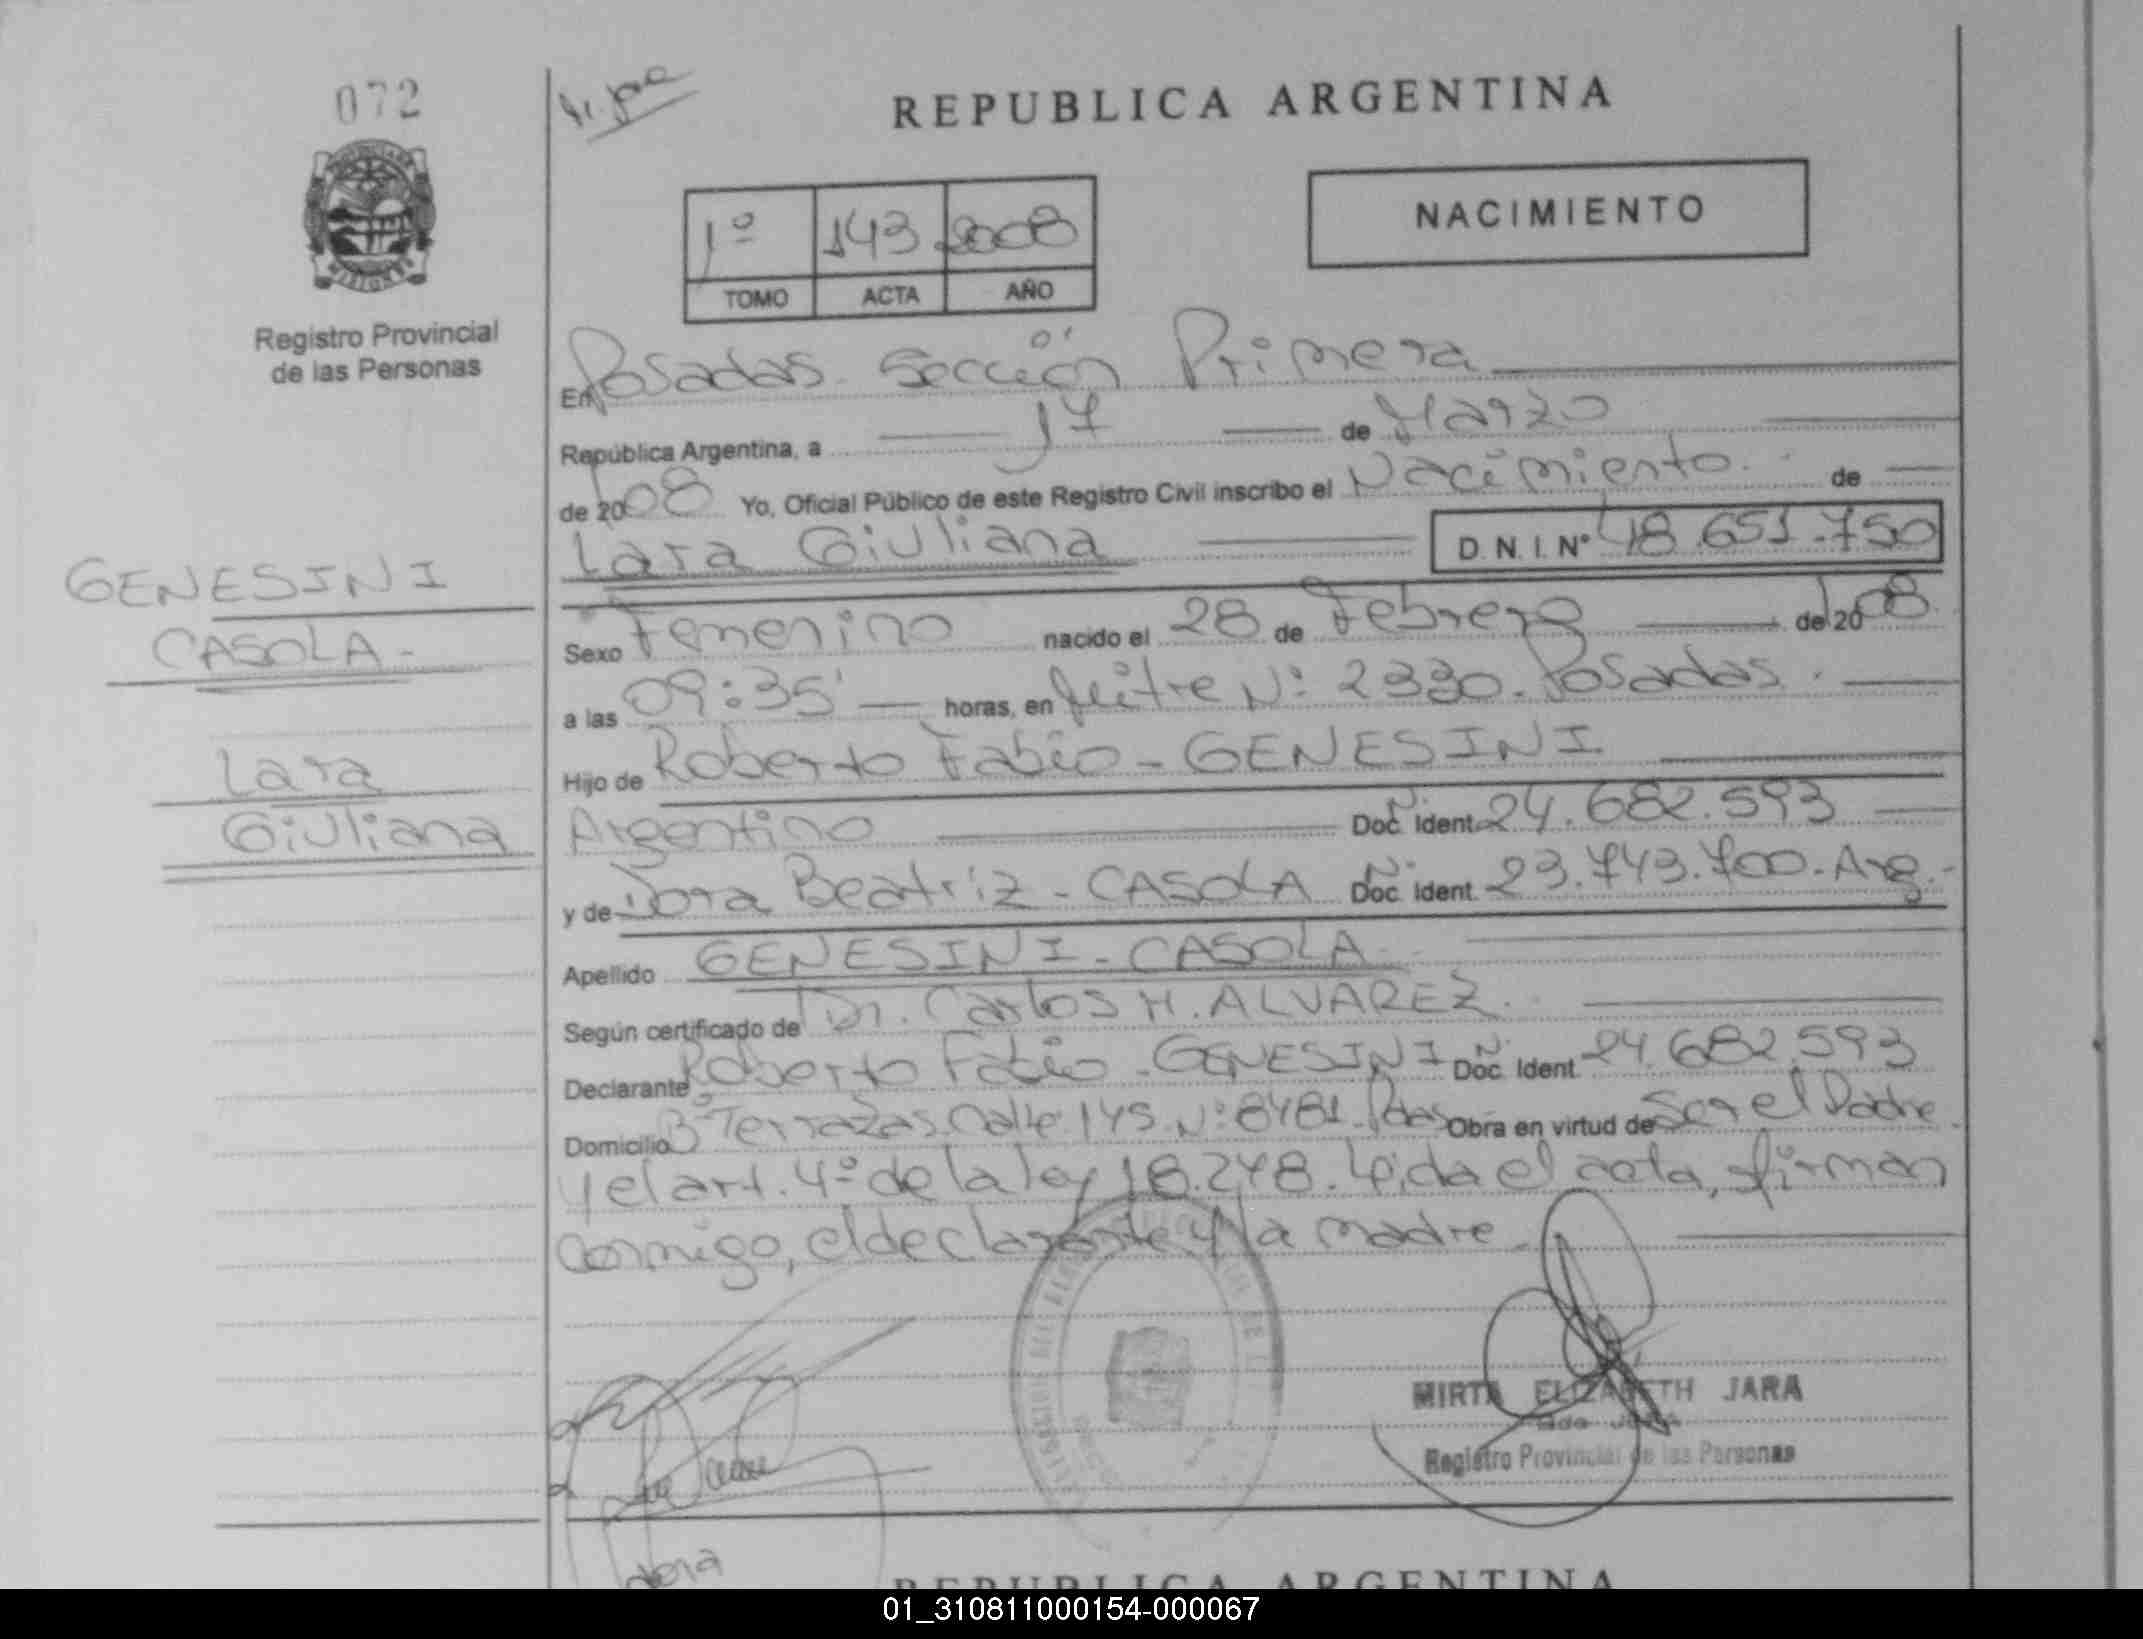 072
REPUBLICA ARGENTINA
NACIMIENTO
1º 143 2008
TOMO ACTA AÑO
Registro Provincial
de las Personas
En Posadas Sección Primera
República Argentina, a 17 de Marzo
de 2008 Yo, Oficial Público de este Registro Civil inscribo el Nacimiento de
Lara Giuliana D.N.I.Nº 48.651.750
GENESINI
CASOLA
Lara
Giuliana
Sexo Femenino nacido el 28 de Febrero de 2008
a las 09:35' horas, en Mitre Nº 2330. Posadas.
Hijo de Roberto Fabio - GENESINI
Argentino Nº Doc. Ident. 24.682.593
y de Dora Beatriz - CASOLA Nº Doc. Ident. 23.743.700. Arg.
Apellido GENESINI - CASOLA
Según certificado de Dr. Carlos H. ALVAREZ.
Declarante Roberto Fabio - GENESINI Nº Doc. Ident. 24.682.593
Domicilio Bº Terrazas Calle 145 Nº 8481. Pdas Obra en virtud de Ser el Padre
y el art. 4º de la ley 18.248. Leida el acta, firman
conmigo, el declarante y la madre.
MIRTA ELIZABETH JARA
Registro Provincial de las Personas
REPUBLICA ARGENTINA
01_310811000154-000067